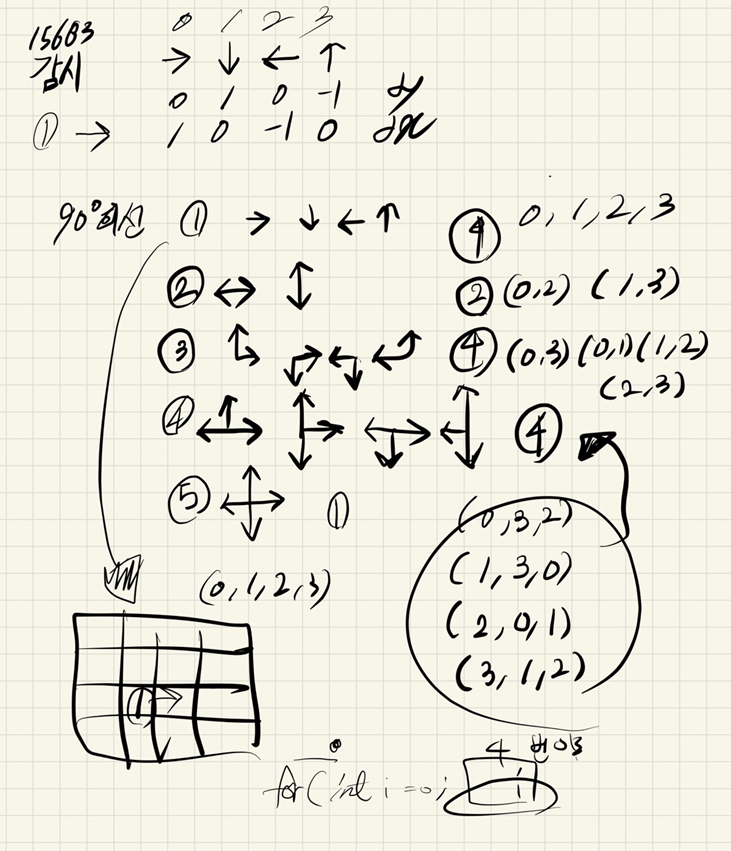 15683
감시
0 1 2 3
→ ↓ ← ↑
0 1 0 -1 dy
① → 1 0 -1 0 dx
90°회전 ① → ↓ ← ↑ ④ 0, 1, 2, 3
② ↔ ↕ ② (0,2) (1,3)
③ ④ (0,3) (0,1) (1,2)
(2,3)
④ ④
⑤ ①
(0,3,2)
(1,3,0)
(0,1,2,3)
(2,0,1)
(3,1,2)
① →
4
for(int i=0; i